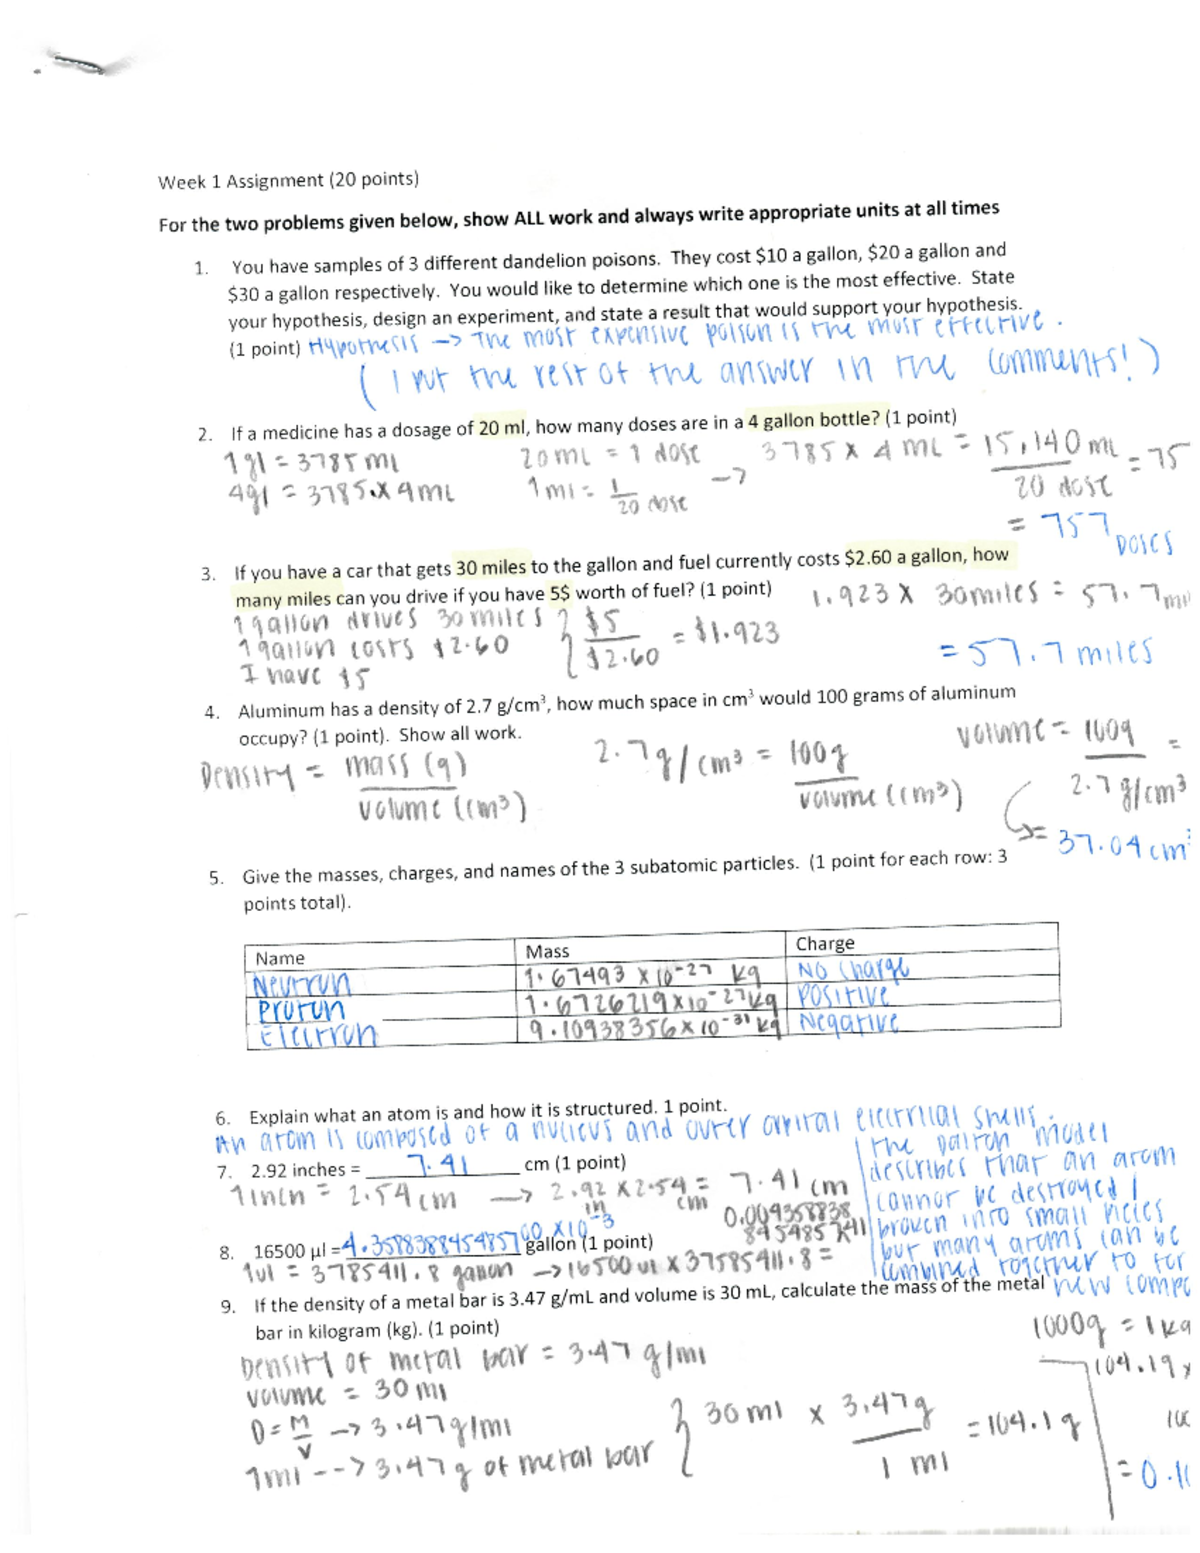 Week 1 Assignment (20 points)
For the two problems given below, show ALL work and always write appropriate units at all times
1. You have samples of 3 different dandelion poisons. They cost $10 a gallon, $20 a gallon and
$30 a gallon respectively. You would like to determine which one is the most effective. State
your hypothesis, design an experiment, and state a result that would support your hypothesis.
(1 point) Hypothesis -> The most expensive poison is the most effective.
( I put the rest of the answer in the comments! )
2. If a medicine has a dosage of 20 ml, how many doses are in a 4 gallon bottle? (1 point)
1gl = 3785 ml 20 mL = 1 dose -> 3785 x 4 mL = 15,140 mL = 75
4gl = 3785 x 4 mL 1 ml = 1/20 dose 20 dose
= 757 Doses
3. If you have a car that gets 30 miles to the gallon and fuel currently costs $2.60 a gallon, how
many miles can you drive if you have 5$ worth of fuel? (1 point) 1.923 x 30 miles = 57.7 mi
1 gallon drives 30 miles $5
1 gallon costs $2.60 $2.60 = $1.923 = 57.7 miles
I have $5
4. Aluminum has a density of 2.7 g/cm³, how much space in cm³ would 100 grams of aluminum
occupy? (1 point). Show all work.
Density = mass (g) 2.7 g/cm³ = 100g volume = 100g =
volume (cm³) volume (cm³) 2.7 g/cm³
= 37.04 cm³
5. Give the masses, charges, and names of the 3 subatomic particles. (1 point for each row: 3
points total).
Name Mass Charge
Neutron 1.67493 x 10-27 kg No Charge
Proton 1.6726219 x 10-27 kg Positive
Electron 9.10938356 x 10-31 kg Negative
6. Explain what an atom is and how it is structured. 1 point.
An atom is composed of a nucleus and outer orbital electrical shells.
The Dalton model
describes that an atom
cannot be destroyed /
broken into small pieces
but many atoms can be
combined together to for
new compo
7. 2.92 inches = 7.41 cm (1 point)
1 inch = 2.54 cm -> 2.92 in x 2.54 cm = 7.41 cm
8. 16500 µl = 4.35883884548570 x 10-3 gallon (1 point)
0.004358838
845485
1ul = 3785411.8 gallon -> 16500 ul x 37585411.8 =
9. If the density of a metal bar is 3.47 g/mL and volume is 30 mL, calculate the mass of the metal
bar in kilogram (kg). (1 point)
1000g = 1 kg
Density of metal bar = 3.47 g/ml
104.19 x
volume = 30 ml
D = M/V -> 3.47 g/ml 30 ml x 3.47g = 104.1 g
1 ml --> 3.47 g of metal bar 1 ml
= 0.1